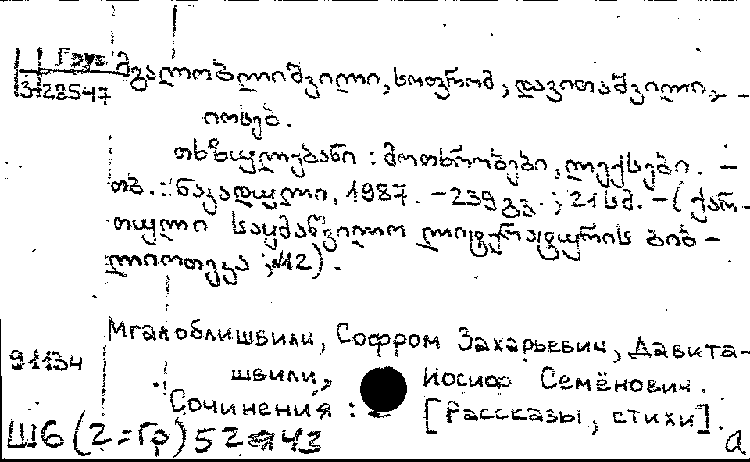 Ц Груз
3-28547
მგალობლიშვილი, სოფრომ, დავითაშვილი,
იოსებ.
თხზულებანი : მოთხრობები, ლექსები. —
თბ. : ნაკადული, 1987. — 239 გვ. ; 21 სმ. — (ქარ-
თული საყმაწვილო ლიტერატურის ბიბ-
ლიოთეკა ; №12).
Мгалоблишвили, Софром Захарьевич, Давита-
91134
швили, Иосиф Семёнович.
Сочинения : [Рассказы, стихи].
Ш6(2=Гр)52 43
а